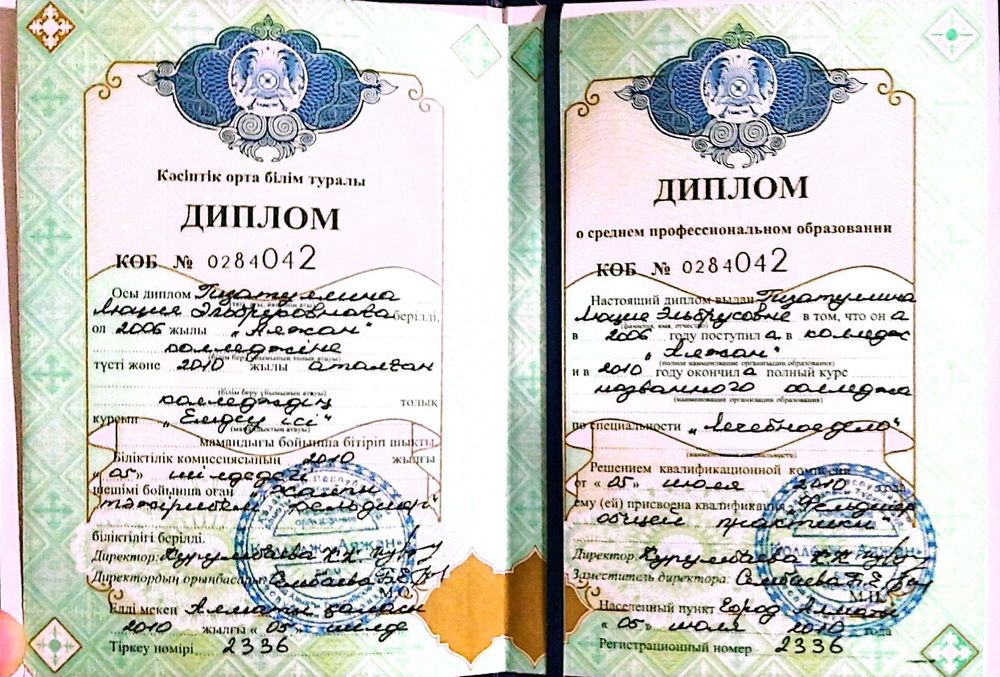 Кәсіптік орта білім туралы
ДИПЛОМ
КОБ № 0284042
Осы диплом Гизатуллина
Люция Эльбрусовнаға берілді,
ол 2006 жылы „Аяжан"
колледжіне
түсті және 2010 жылы аталған
(білім беру ұйымының атауы)
колледждің толық
курсын „Емдеу ісі"
(мамандықтың атауы)
мамандығы бойынша бітіріп шықты.
Біліктілік комиссиясының 2010 жылғы
« 05 » шілдедегі
шешімі бойынша оған жалпы
тәжірибелі фельдшер"
біліктілігі берілді.
Директор:
Директордың орынбасары:
М.О.
Елді мекен Алматы қаласы
2010 жылғы « 05 » шілде
Тіркеу нөмірі 2336
ДИПЛОМ
о среднем профессиональном образовании
КОБ № 0284042
Настоящий диплом выдан Гизатуллина
Люцие Эльбрусовне в том, что он а
(фамилия, имя, отчество)
в 2006 году поступил а в колледж
„Аяжан"
(полное наименование организации образования)
и в 2010 году окончил а полный курс
названного колледжа
(наименование организации образования)
по специальности „Лечебное дело"
(наименование специальности)
Решением квалификационной комиссии
от « 05 » июля 2010
ему (ей) присвоена квалификация „Фельдшер
общей практики"
Директор
Заместитель директора:
М.П.
Населенный пункт Город Алматы
« 05 » июля 2010 года
Регистрационный номер 2336